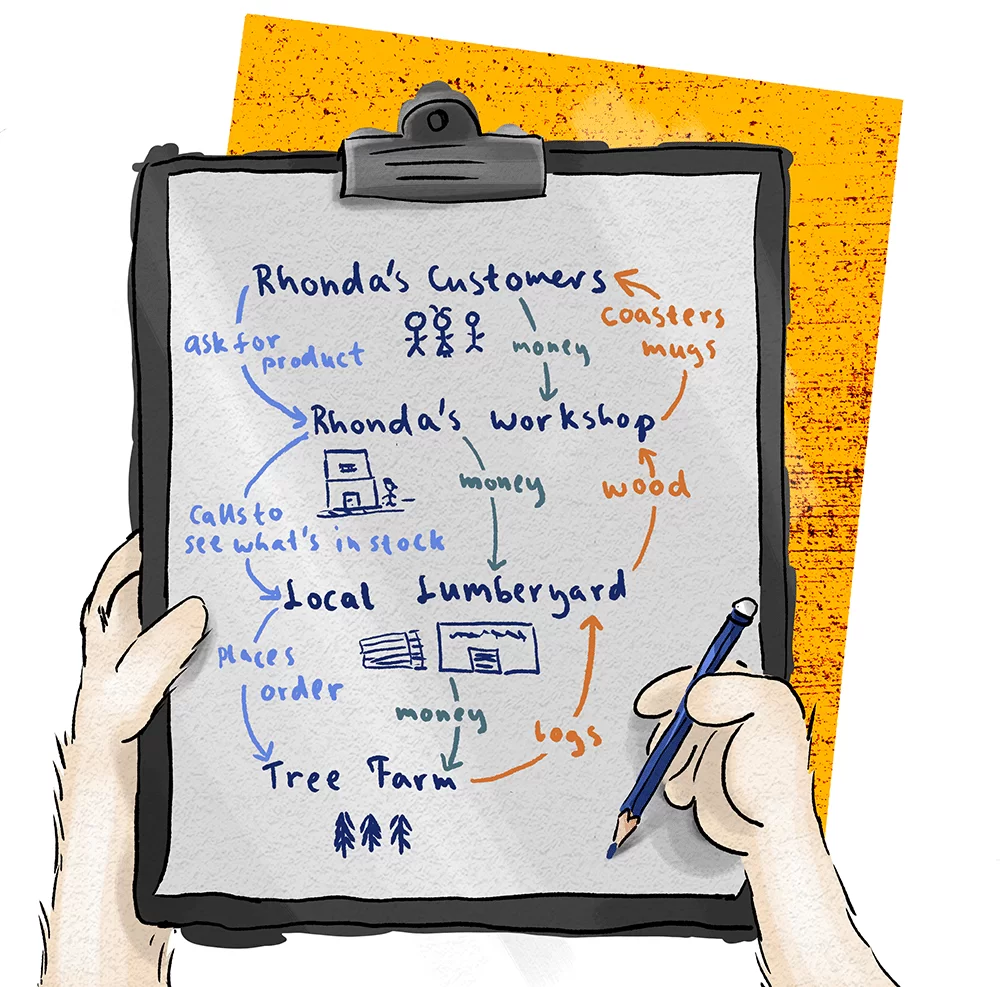 Rhonda's Customers
coasters
mugs
ask for
product
money
Rhonda's workshop
money
wood
calls to
see what's in stock
Local Lumberyard
places
order
money
logs
Tree Farm